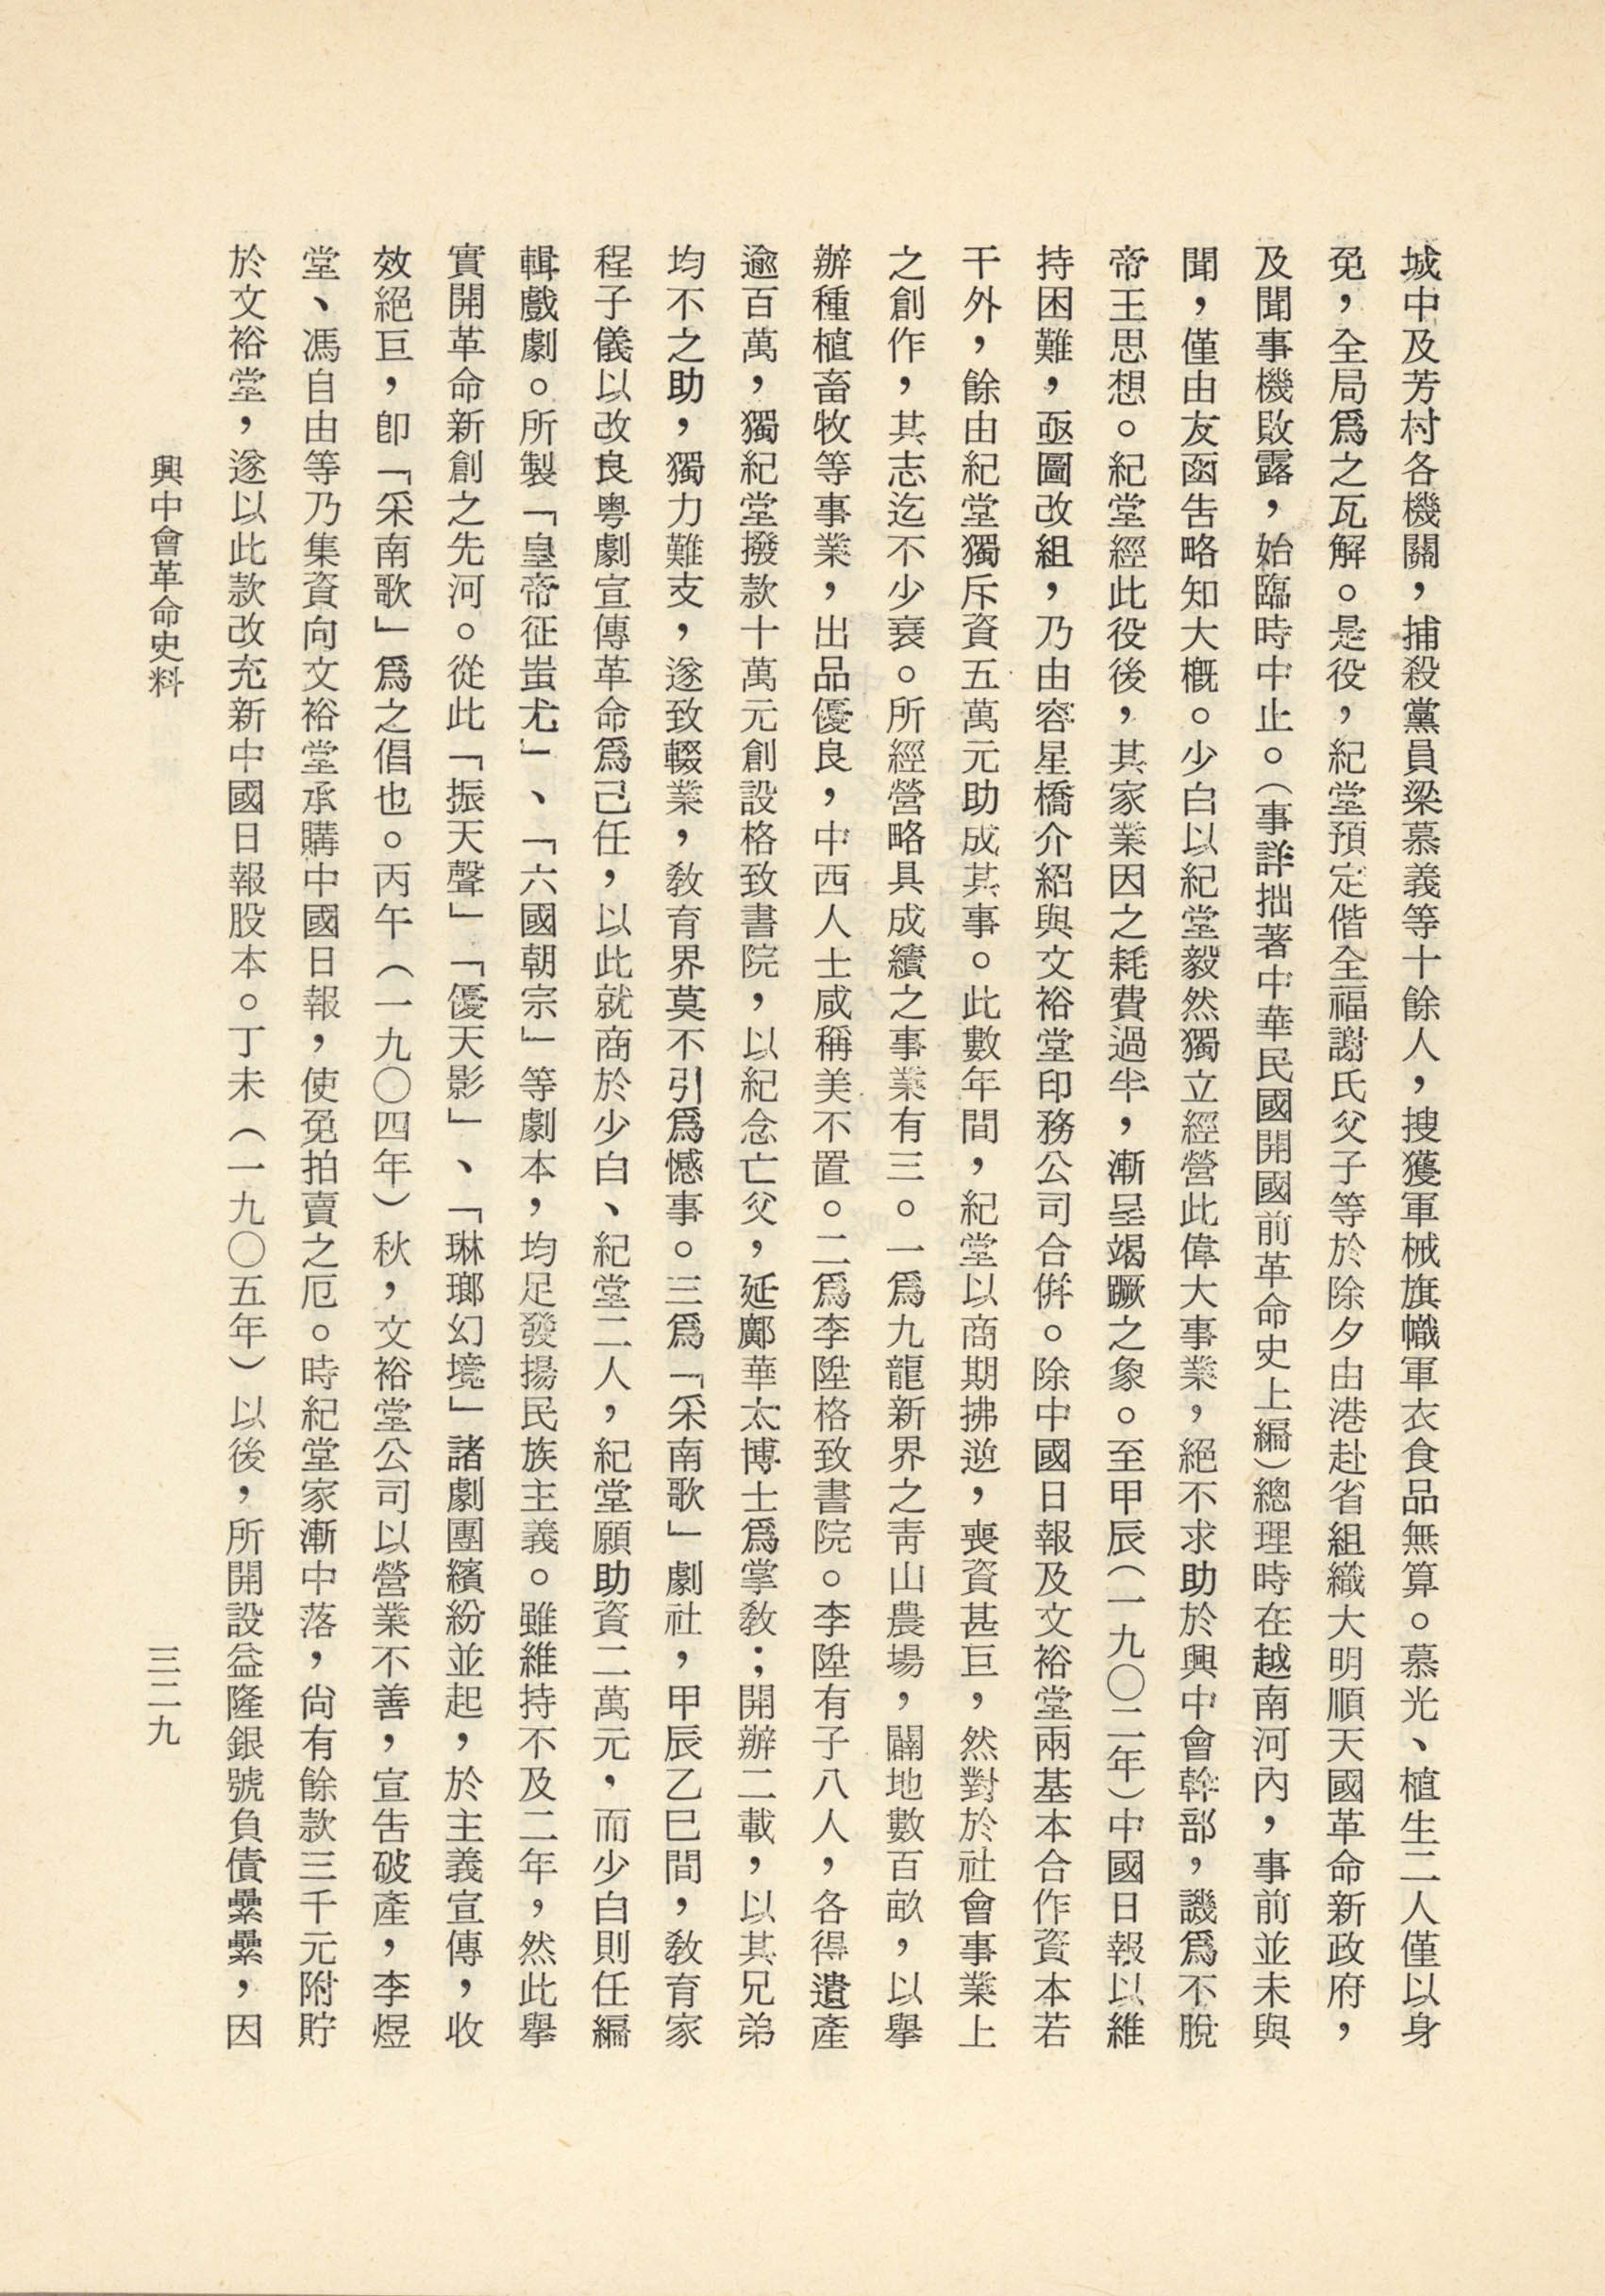 城中及芳村各機關，捕殺黨員梁慕義等十餘人，搜獲軍械旗幟軍衣食品無算。慕光、植生二人僅以身
免，全局爲之瓦解。是役，紀堂預定偕全福謝氏父子等於除夕由港赴省組織大明順天國革命新政府，
及聞事機敗露，始臨時中止。（事詳拙著中華民國開國前革命史上編）總理時在越南河內，事前並未與
聞，僅由友函告略知大概。少白以紀堂毅然獨立經營此偉大事業，絕不求助於興中會幹部，譏爲不脫
帝王思想。紀堂經此役後，其家業因之耗費過半，漸呈竭蹶之象。至甲辰（一九〇二年）中國日報以維
持困難，亟圖改組，乃由容星橋介紹與文裕堂印務公司合併。除中國日報及文裕堂兩基本合作資本若
干外，餘由紀堂獨斥資五萬元助成其事。此數年間，紀堂以商期拂逆，喪資甚巨，然對於社會事業上
之創作，其志迄不少衰。所經營略具成績之事業有三。一爲九龍新界之靑山農場，闢地數百畝，以舉
辦種植畜牧等事業，出品優良，中西人士咸稱美不置。二爲李陞格致書院。李陞有子八人，各得遺產
逾百萬，獨紀堂撥款十萬元創設格致書院，以紀念亡父，延鄺華太博士爲掌敎；開辦二載，以其兄弟
均不之助，獨力難支，遂致輟業，敎育界莫不引爲憾事。三爲「采南歌」劇社，甲辰乙巳間，敎育家
程子儀以改良粵劇宣傳革命爲己任，以此就商於少白、紀堂二人，紀堂願助資二萬元，而少白則任編
輯戲劇。所製「皇帝征蚩尤」、「六國朝宗」等劇本，均足發揚民族主義。雖維持不及二年，然此舉
實開革命新創之先河。從此「振天聲」「優天影」、「琳瑯幻境」諸劇團繽紛並起，於主義宣傳，收
效絕巨，卽「采南歌」爲之倡也。丙午（一九〇四年）秋，文裕堂公司以營業不善，宣告破產，李煜
堂、馮自由等乃集資向文裕堂承購中國日報，使免拍賣之厄。時紀堂家漸中落，尙有餘款三千元附貯
於文裕堂，遂以此款改充新中國日報股本。丁未（一九〇五年）以後，所開設益隆銀號負債纍纍，因
興中會革命史料
三二九